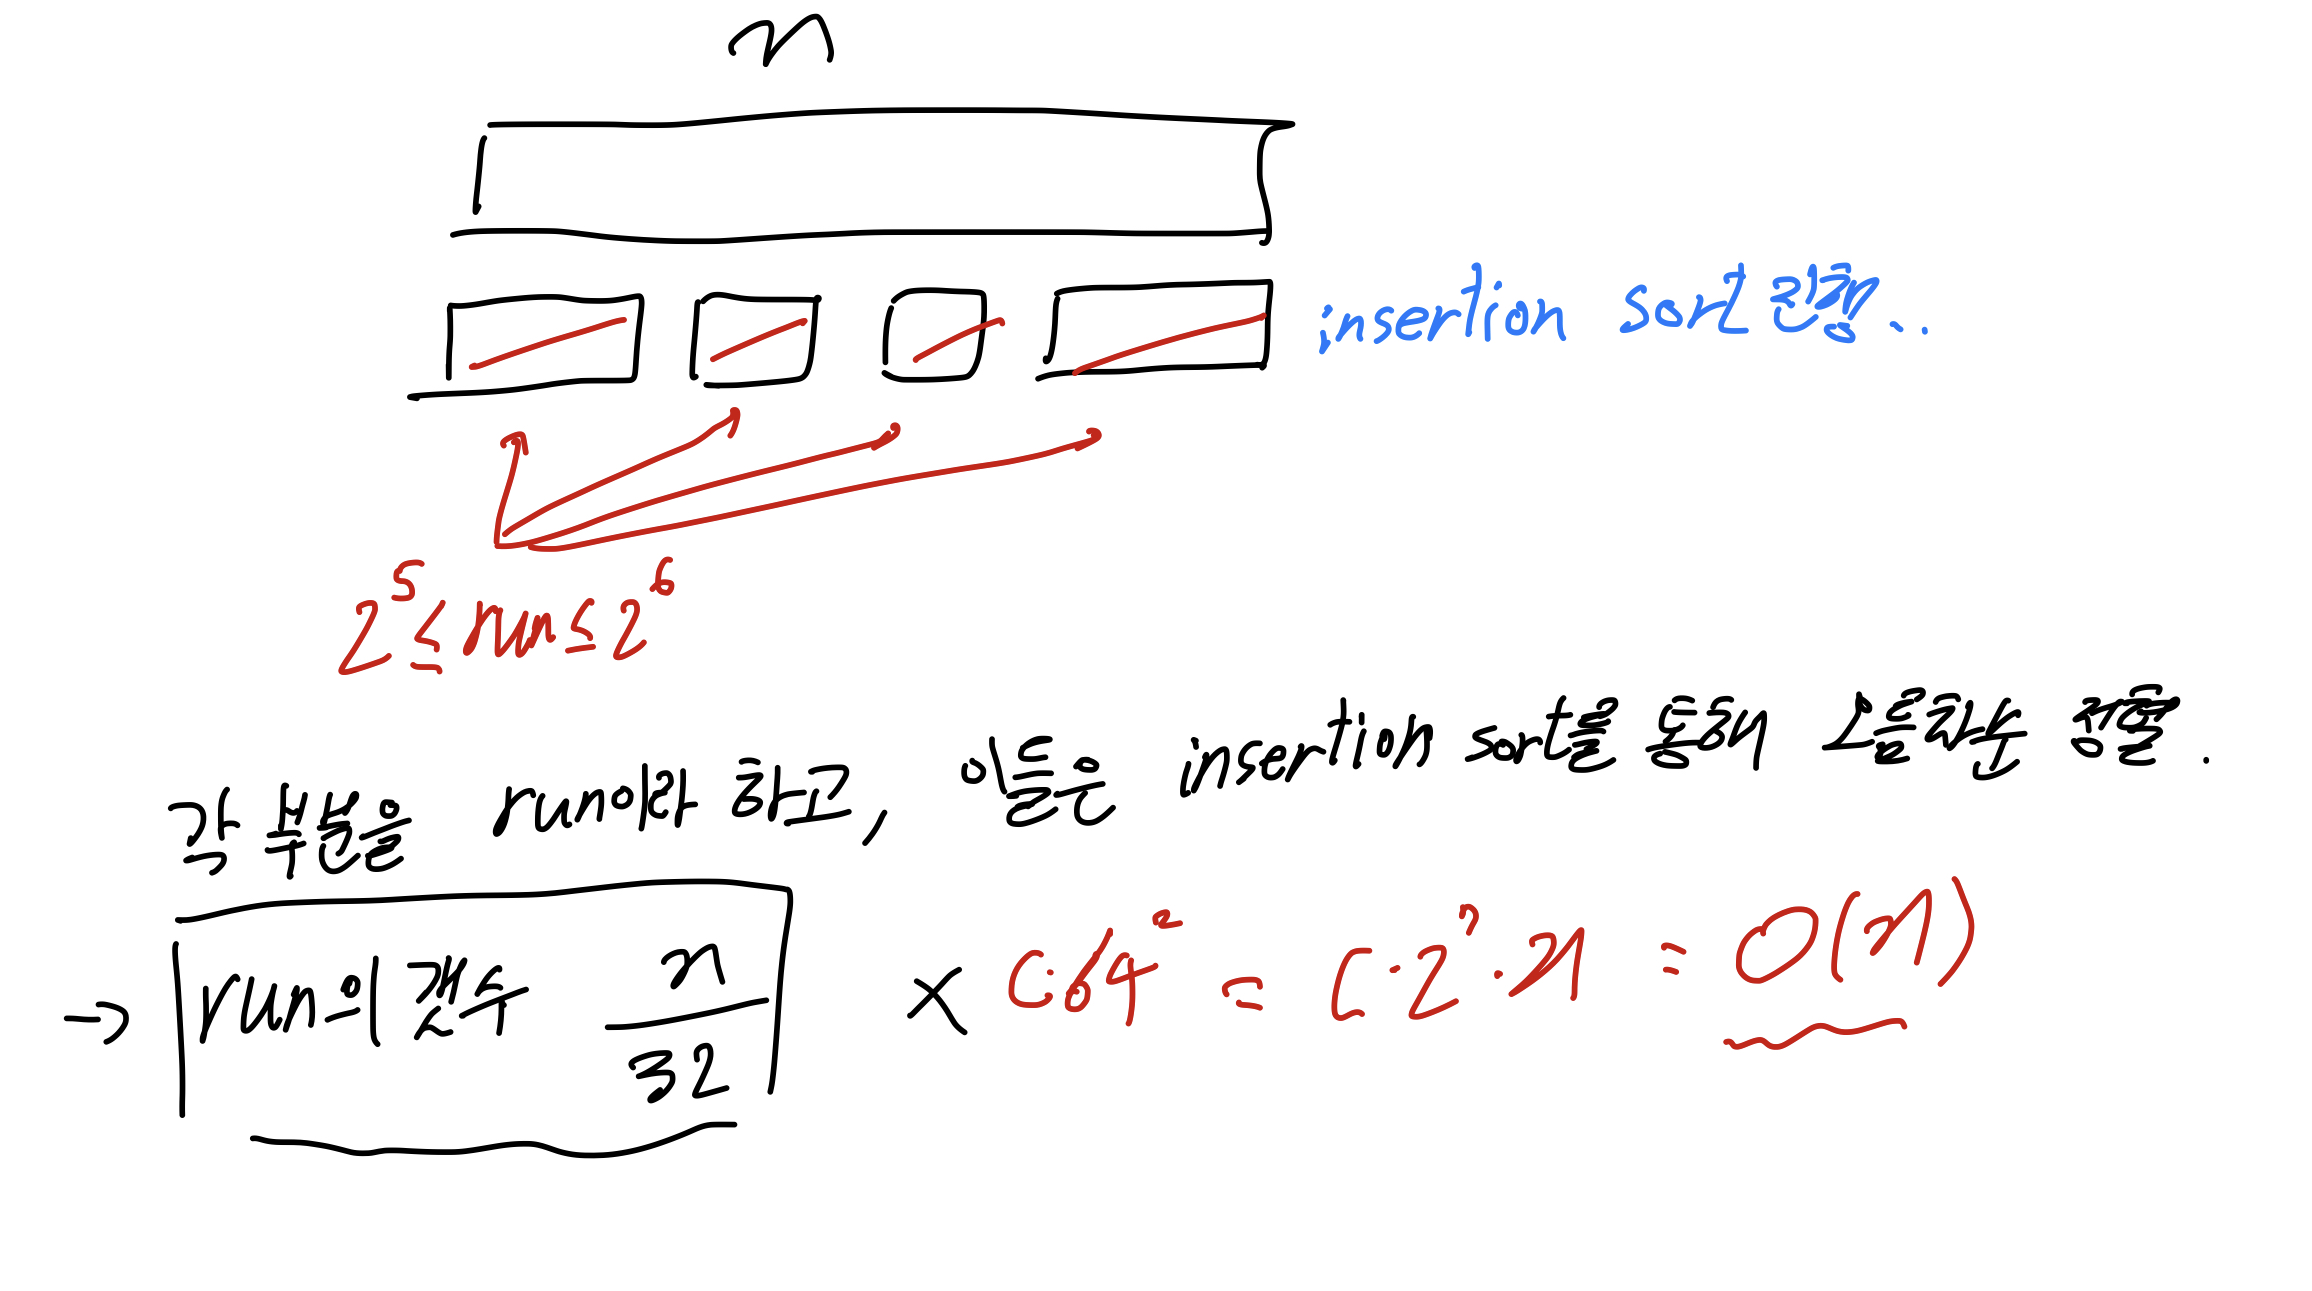 n
insertion sort 진행..
2^5 ≤ run ≤ 2^6
각 부분을 run이라 하고, 이들은 insertion sort를 통해 오름차순 정렬.
→ run의 갯수 n/32 × C·64^2 = C·2^7·n = O(n)